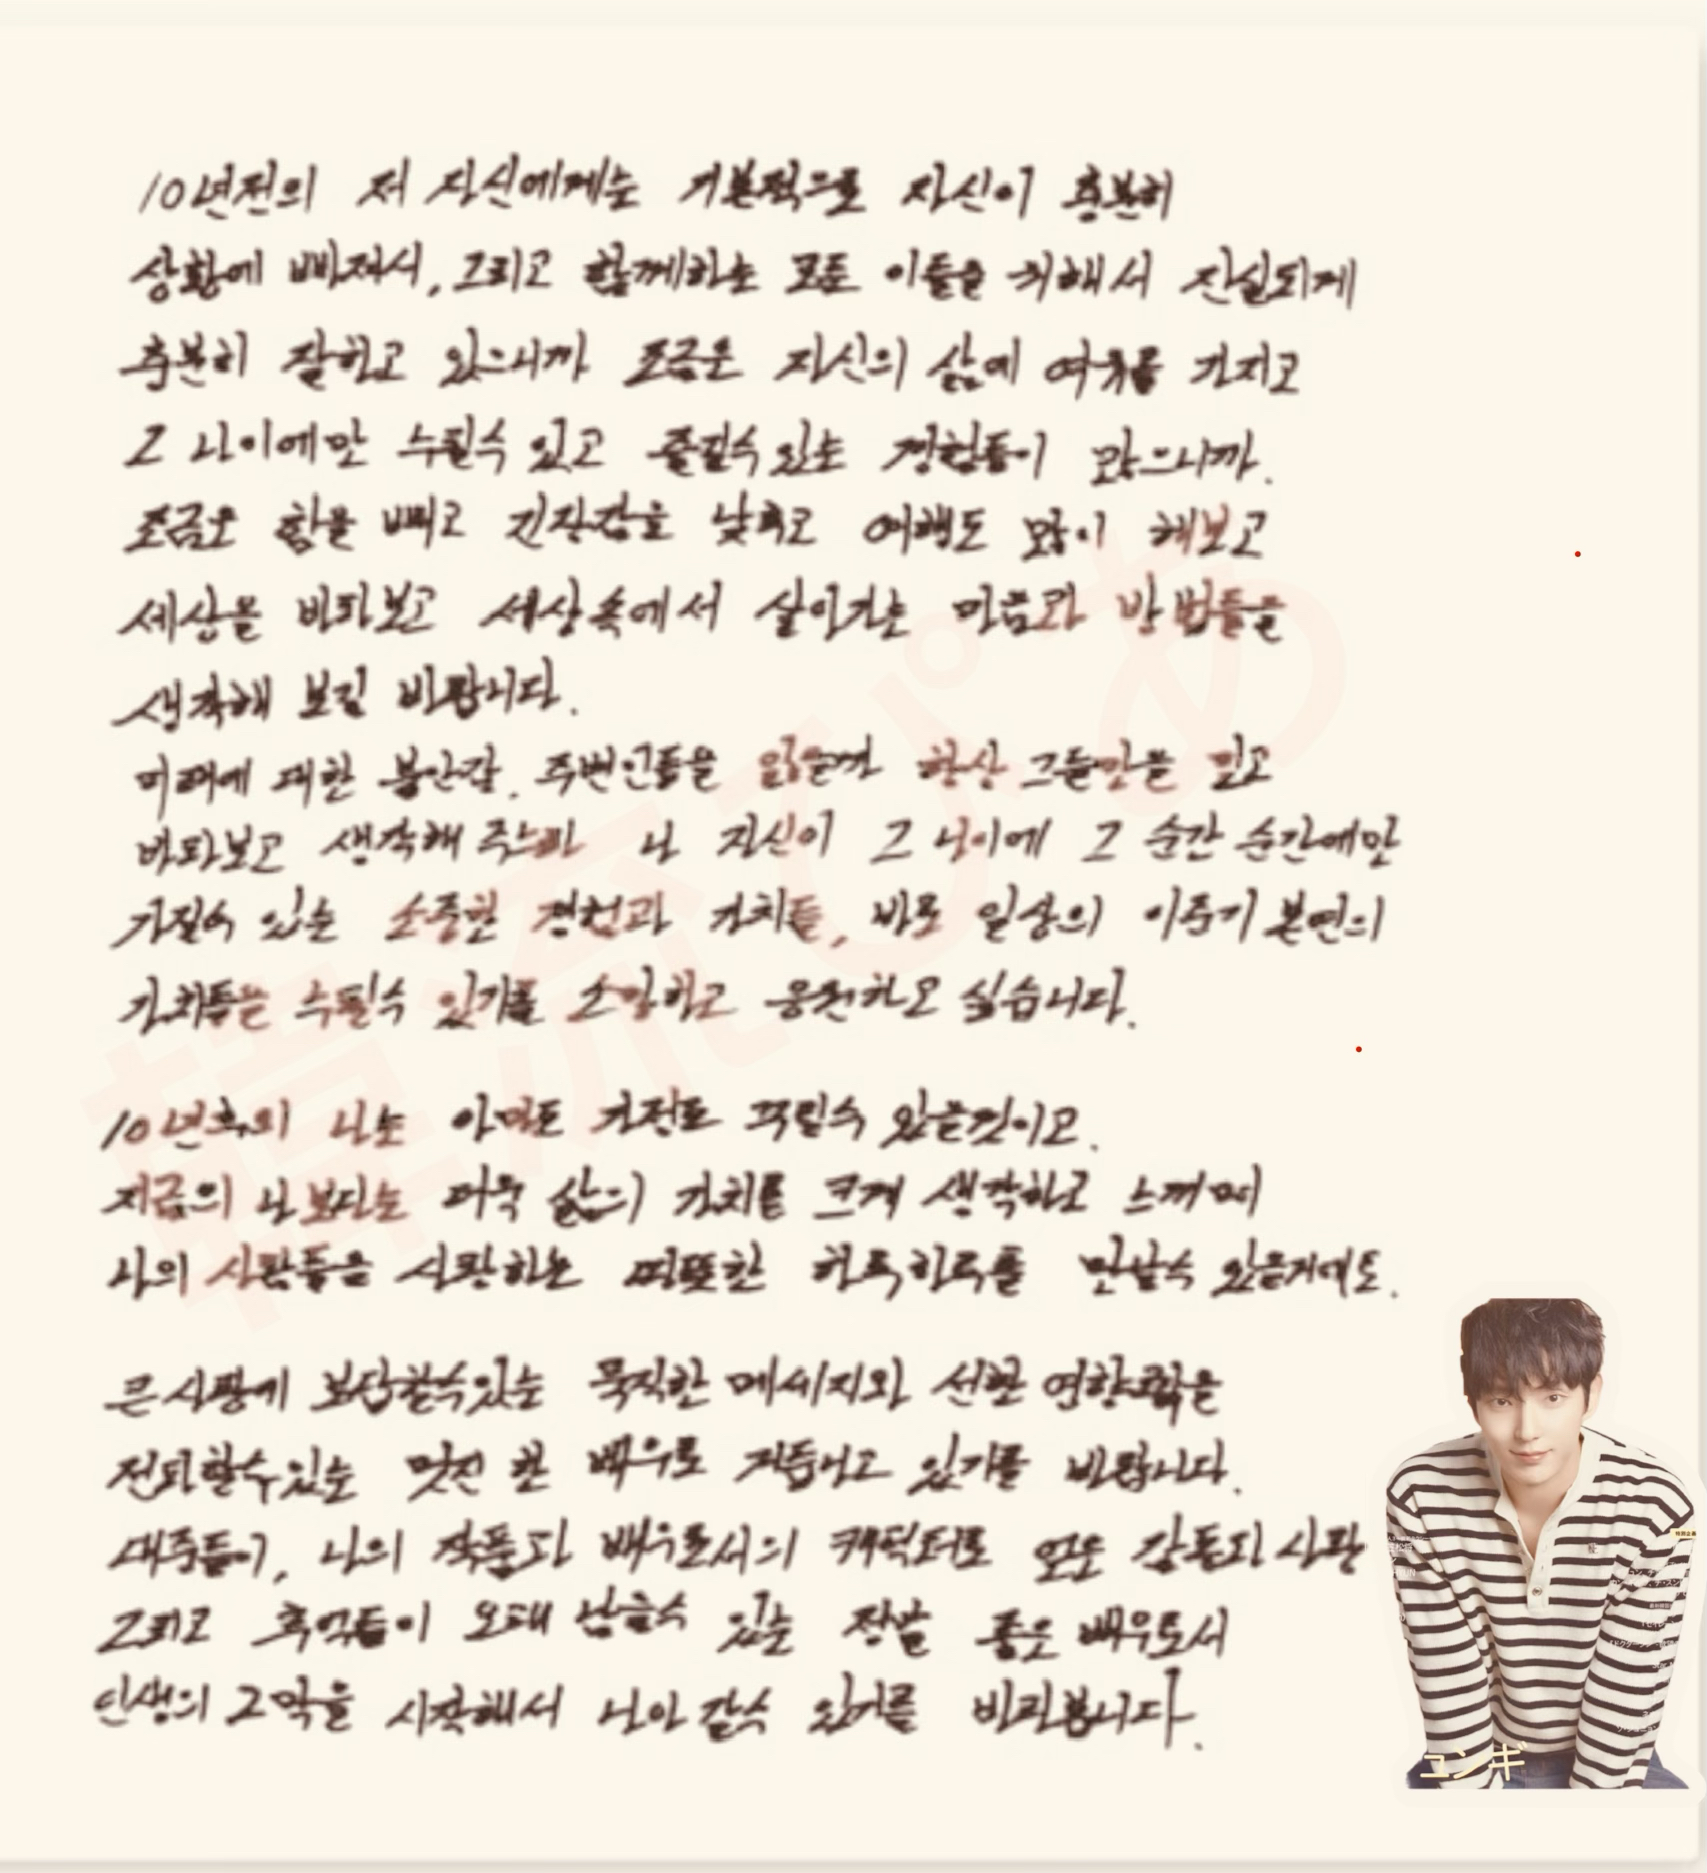 10년전의 저 자신에게는 기본적으로 자신이 충분히
상황에 빠져서, 그리고 함께하는 모든 이들을 위해서 진실되게
충분히 잘하고 있으니까 조금은 자신의 삶에 여유를 가지고
그 나이에만 누릴수 있고 즐길수있는 경험들이 많으니까.
조금은 힘을 빼고 긴장감을 낮추고 여행도 많이 해보고
세상을 바라보고 세상속에서 살아가는 마음과 방법들을
생각해 보길 바랍니다.
미래에 대한 불안감. 주변인들을 항상 그들만을 믿고
바라보고 생각해 주느라 나 자신이 그 나이에 그 순간 순간에만
가질수 있는 소중한 경험과 가치들, 바로 일상의 이준기 본연의
가치들을 누릴수 있기를 소망하고 응원하고 싶습니다.
10년후의 나는 아마도 가정도 꾸릴수 있을것이고.
지금의 나보다는 더욱 삶의 가치를 크게 생각하고 느끼며
나의 사람들을 사랑하는 따뜻한 하루하루를 만날수 있을거예요.
큰 사랑에 보답할수있는 묵직한 메세지와 선한 영향력을
전파할수있는 멋진 한 배우로 거듭나고 있기를 바랍니다.
대중들이, 나의 작품과 배우로서의 캐릭터로 얻은 감동과 사랑
그리고 추억들이 오래 남을수 있는 정말 좋은 배우로서
인생의 2막을 시작해서 나아갈수 있기를 바래봅니다.
韓流ぴあ
ユンギ
特別企画